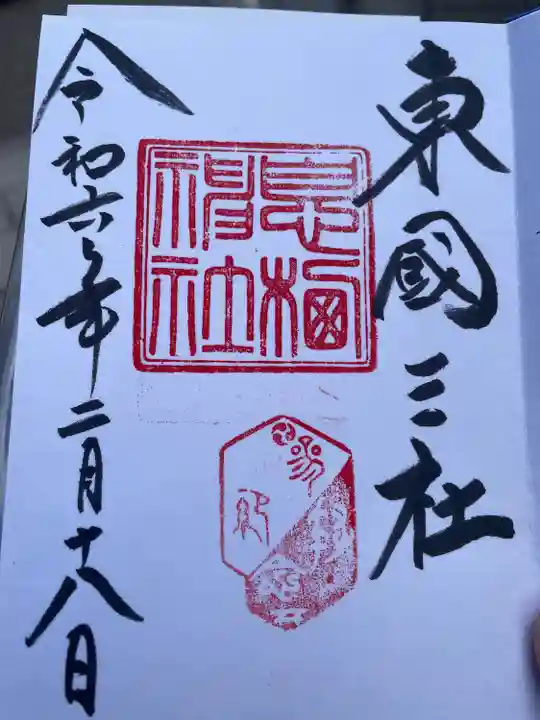 東國三社
息栖神社
令和六年二月十八日